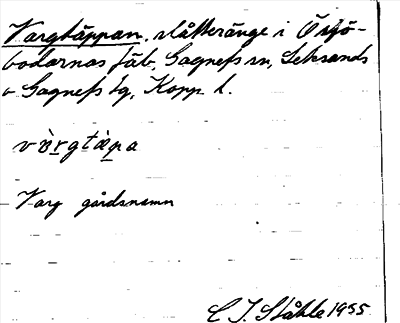 Vargtäppan, slåtteränge i Östjö-
bodarnas fäb, Gagnefs sn, Leksands
o Gagnefs tg, Kopp. l.
vàrgtäpa
Varg gårdsnamn
C I. Ståhle 1955